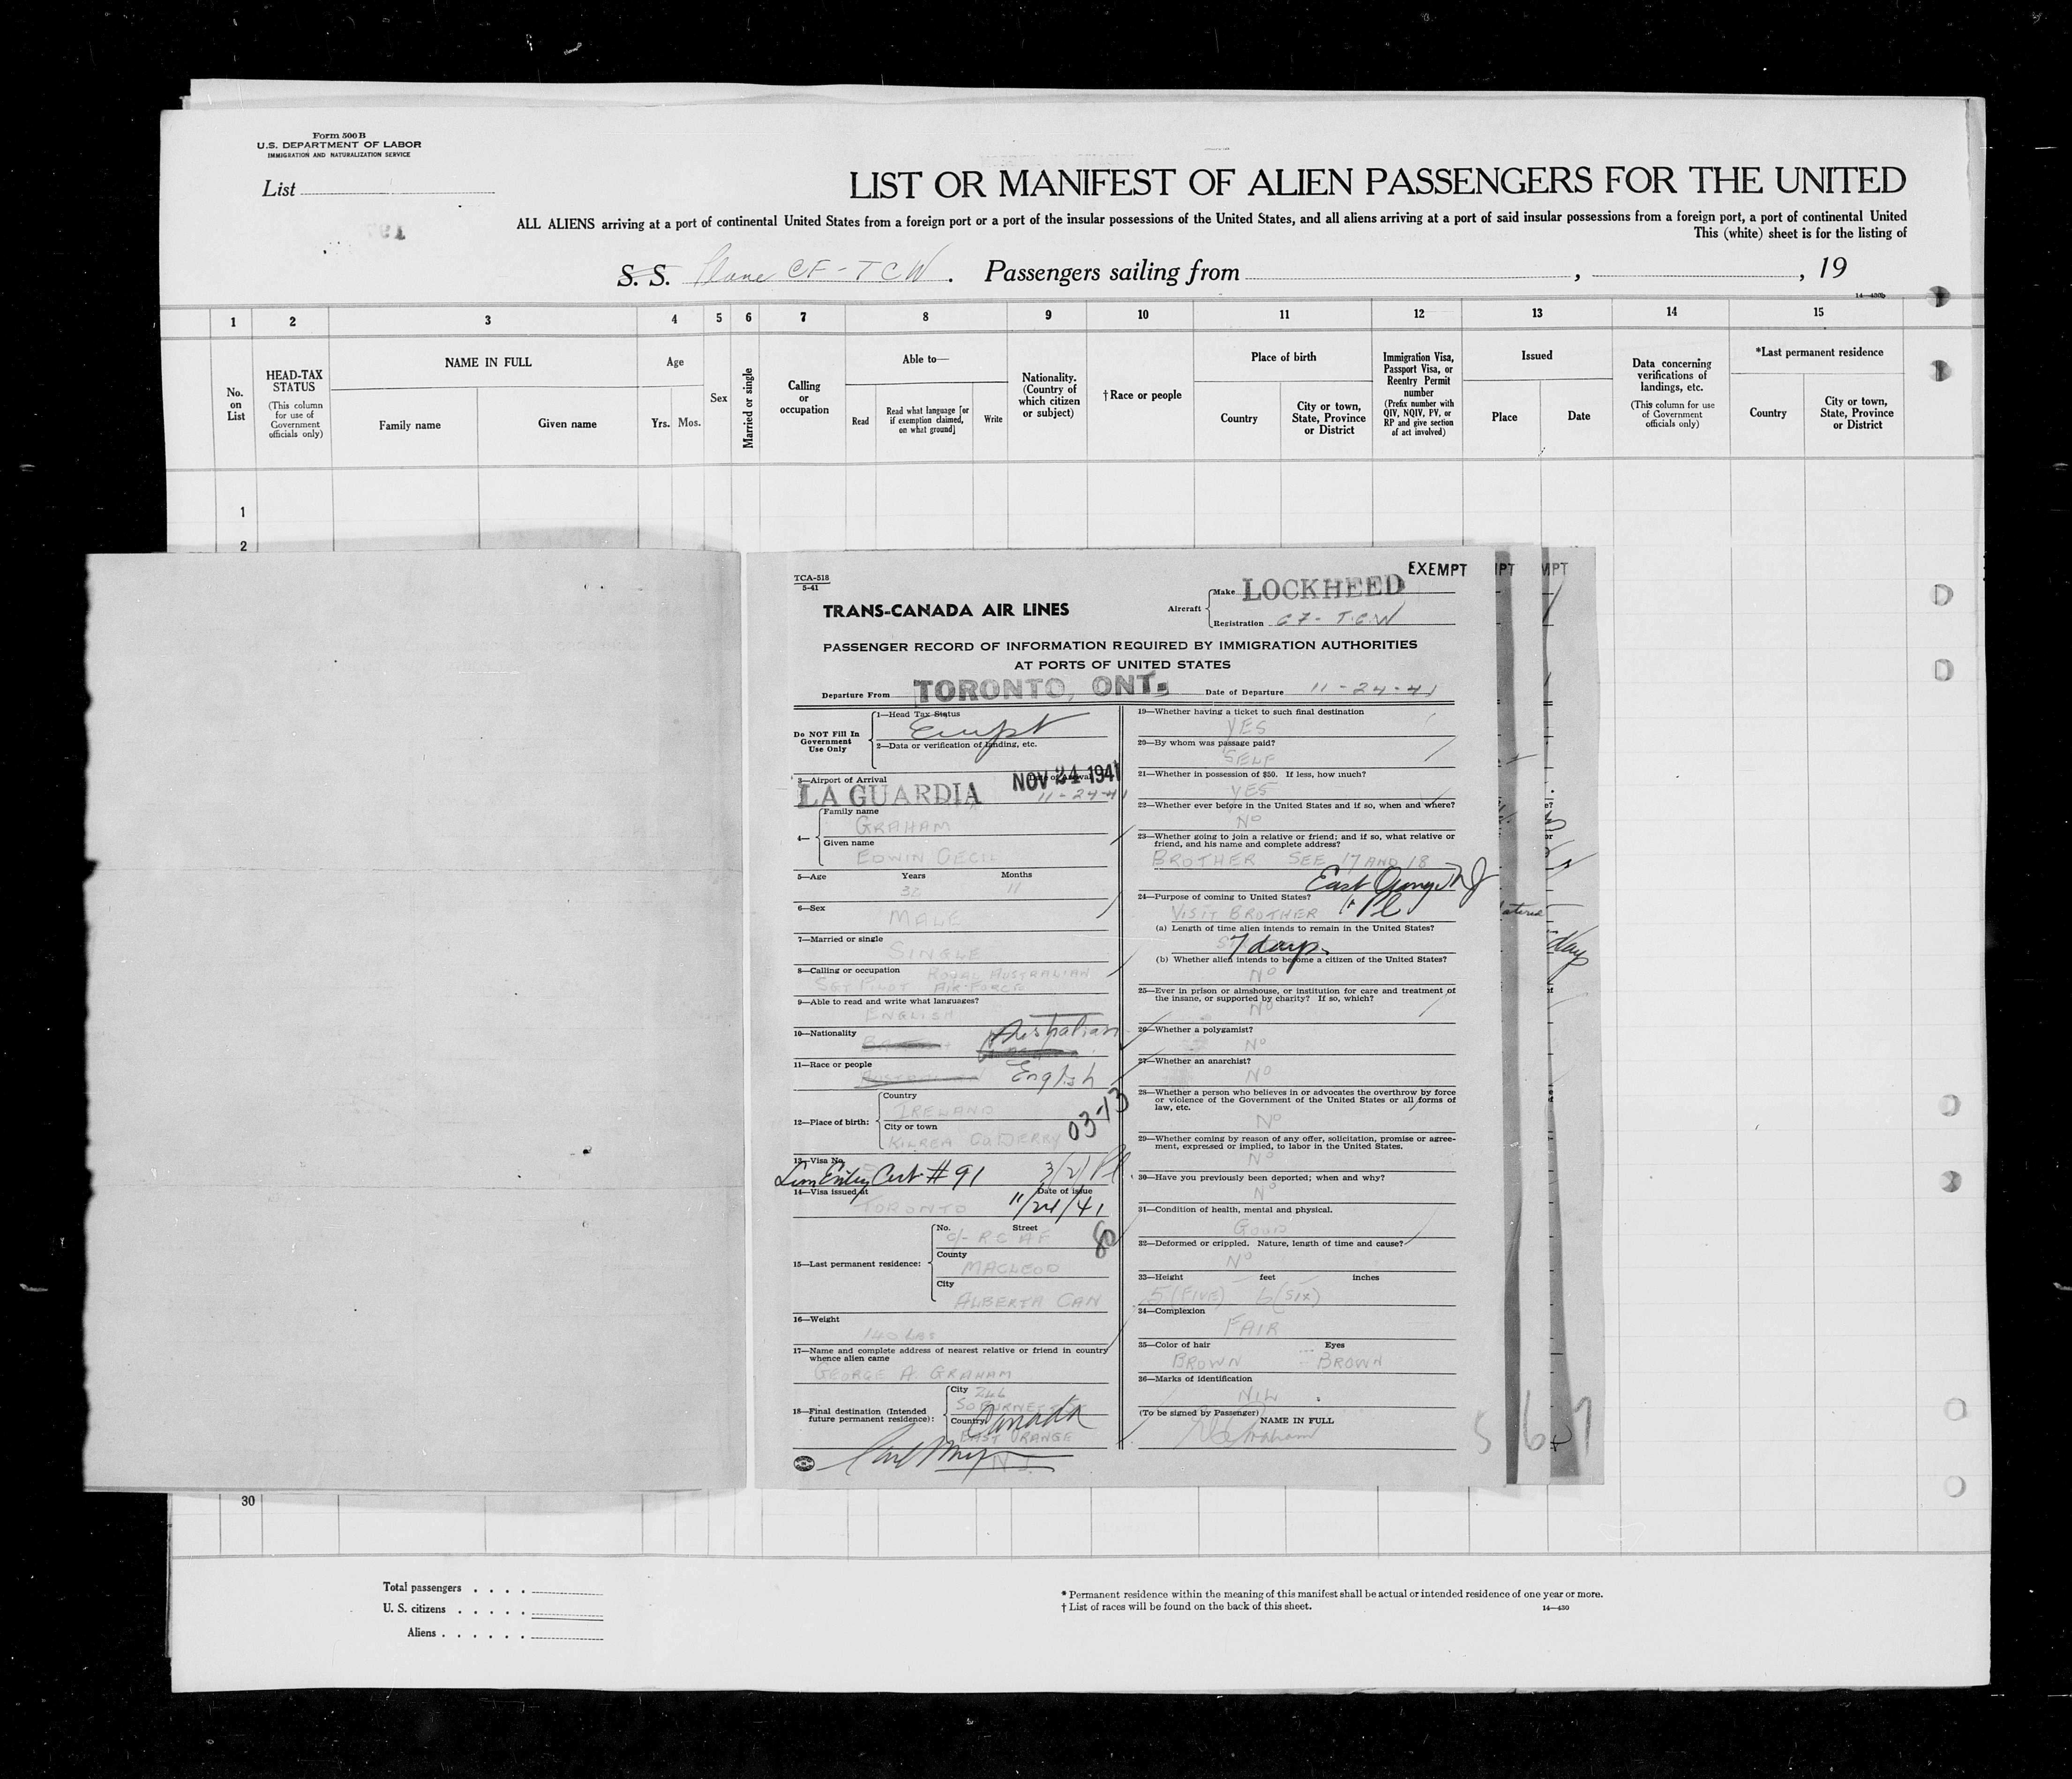 Form 500 B
U.S. DEPARTMENT OF LABOR
IMMIGRATION AND NATURALIZATION SERVICE
List
LIST OR MANIFEST OF ALIEN PASSENGERS FOR THE UNITED
ALL ALIENS arriving at a port of continental United States from a foreign port or a port of the insular possessions of the United States, and all aliens arriving at a port of said insular possessions from a foreign port, a port of continental United
This (white) sheet is for the listing of
S. S. Plane CF-TCW. Passengers sailing from , , 19
14—430b
1 2 3 4 5 6 7 8 9 10 11 12 13 14 15
No. on List
HEAD-TAX STATUS
(This column for use of Government officials only)
NAME IN FULL
Family name
Given name
Age
Yrs. Mos.
Sex
Married or single
Calling or occupation
Able to—
Read
Read what language [or if exemption claimed, on what ground]
Write
Nationality. (Country of which citizen or subject)
†Race or people
Place of birth
Country
City or town, State, Province or District
Immigration Visa, Passport Visa, or Reentry Permit number
(Prefix number with QIV, NQIV, PV, or RP and give section of act involved)
Issued
Place
Date
Data concerning verifications of landings, etc.
(This column for use of Government officials only)
*Last permanent residence
Country
City or town, State, Province or District
1
2
TCA-518
5-41
TRANS-CANADA AIR LINES
EXEMPT
Aircraft
Make LOCKHEED
Registration CF-TCW
PASSENGER RECORD OF INFORMATION REQUIRED BY IMMIGRATION AUTHORITIES
AT PORTS OF UNITED STATES
Departure From TORONTO, ONT. Date of Departure 11-24-41
Do NOT Fill In Government Use Only
1—Head Tax Status
Exempt
2—Data or verification of landing, etc.
3—Airport of Arrival
Date of Arrival
LA GUARDIA NOV 24 1941
11-24-41
4—
Family name
GRAHAM
Given name
EDWIN CECIL
5—Age Years Months
11
6—Sex
MALE
7—Married or single
SINGLE
8—Calling or occupation ROYAL AUSTRALIAN
SGT PILOT AIR FORCE
9—Able to read and write what languages?
ENGLISH
10—Nationality
Australian
11—Race or people
AUSTRALIAN English
12—Place of birth:
Country
IRELAND
City or town
KILREA CO DERRY
03-13
13—Visa No.
Lim Entry Cert # 91 3(2) Pl
14—Visa issued at Date of issue
TORONTO 11/24/41
15—Last permanent residence:
No. Street
c/- RCAF
80
County
MACLEOD
City
ALBERTA CAN
16—Weight
140 LBS
17—Name and complete address of nearest relative or friend in country whence alien came
GEORGE A. GRAHAM
18—Final destination (Intended future permanent residence):
City 246
Country Canada
EAST ORANGE
N J.
19—Whether having a ticket to such final destination
YES
20—By whom was passage paid?
SELF
21—Whether in possession of $50. If less, how much?
YES
22—Whether ever before in the United States and if so, when and where?
NO
23—Whether going to join a relative or friend; and if so, what relative or friend, and his name and complete address?
BROTHER SEE 17 AND 18
East Orange NJ
24—Purpose of coming to United States?
VISIT BROTHER
(a) Length of time alien intends to remain in the United States?
7 days
(b) Whether alien intends to become a citizen of the United States?
NO
25—Ever in prison or almshouse, or institution for care and treatment of the insane, or supported by charity? If so, which?
NO
26—Whether a polygamist?
NO
27—Whether an anarchist?
NO
28—Whether a person who believes in or advocates the overthrow by force or violence of the Government of the United States or all forms of law, etc.
NO
29—Whether coming by reason of any offer, solicitation, promise or agreement, expressed or implied, to labor in the United States.
NO
30—Have you previously been deported; when and why?
NO
31—Condition of health, mental and physical.
GOOD
32—Deformed or crippled. Nature, length of time and cause?
NO
33—Height feet inches
5 (FIVE) 6 (SIX)
34—Complexion
FAIR
35—Color of hair Eyes
BROWN BROWN
36—Marks of identification
NIL
(To be signed by Passenger)
NAME IN FULL
5 6 7
30
Total passengers
U. S. citizens
Aliens
* Permanent residence within the meaning of this manifest shall be actual or intended residence of one year or more.
† List of races will be found on the back of this sheet.
14—430